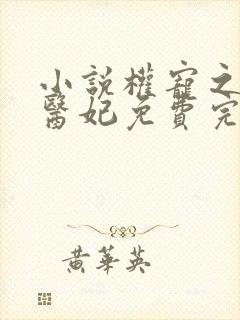 小說權寵之
醫妃免費完
黃華英